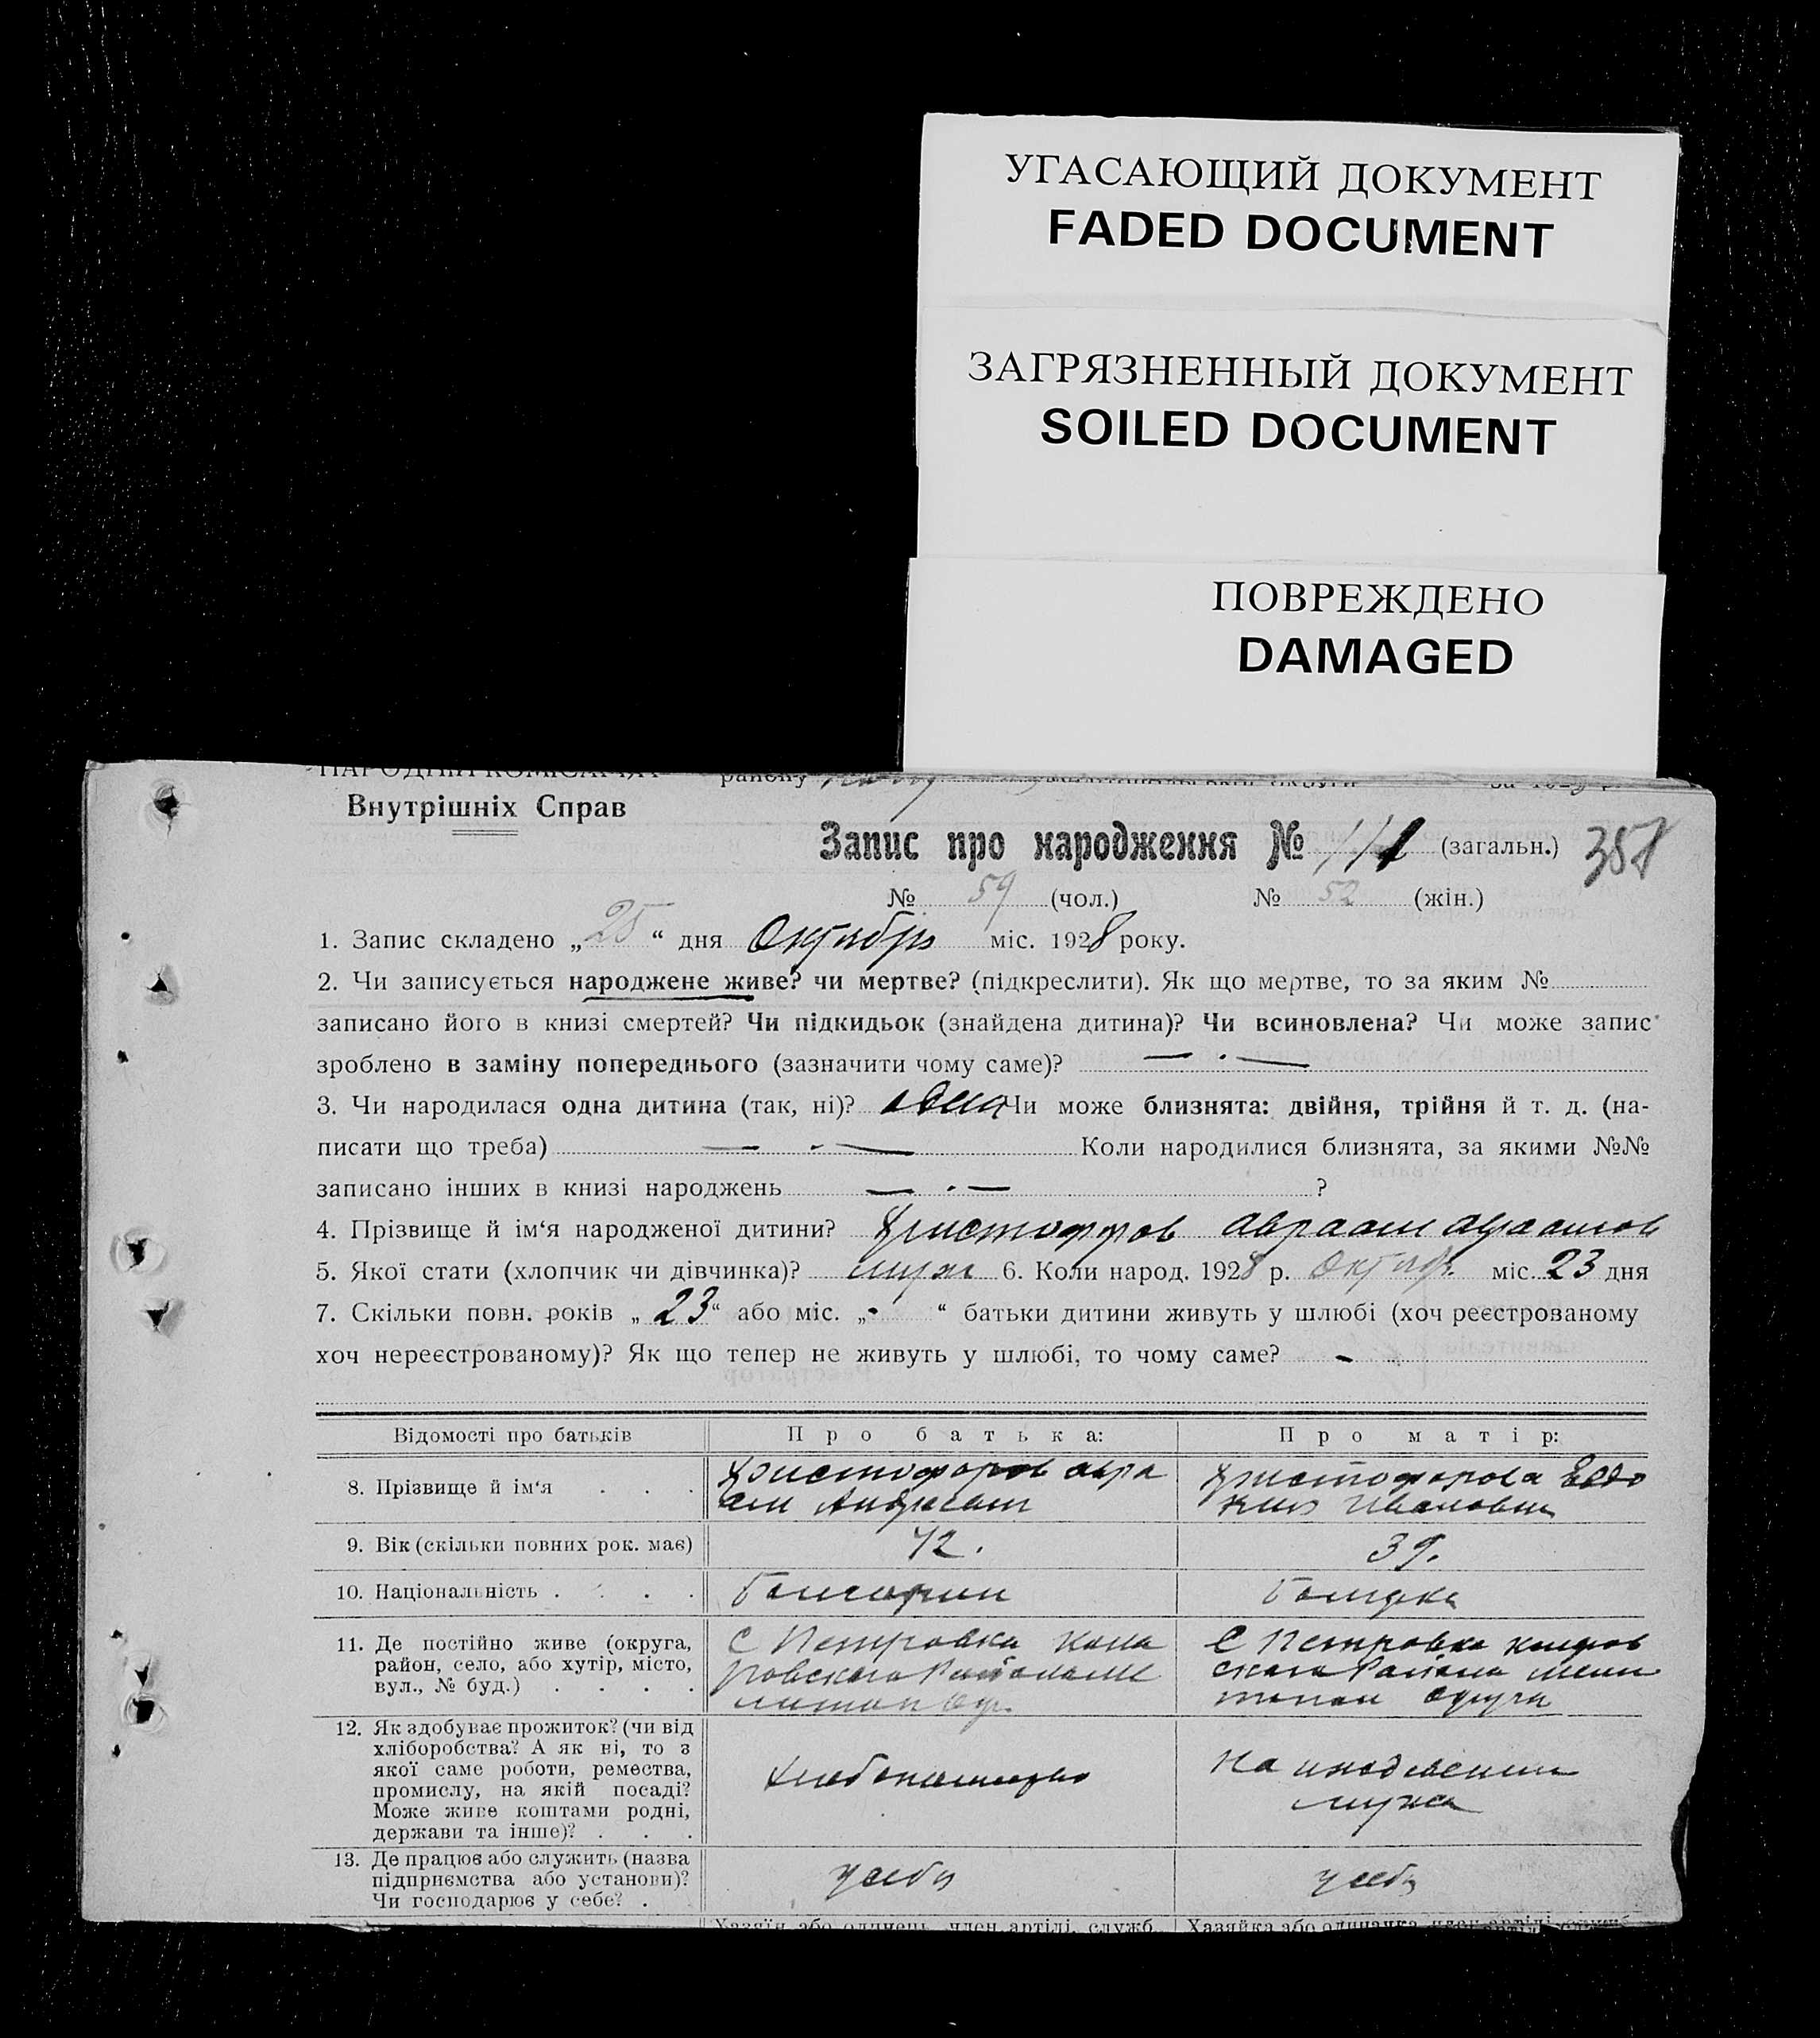 УГАСАЮЩИЙ ДОКУМЕНТ
FADED DOCUMENT
ЗАГРЯЗНЕННЫЙ ДОКУМЕНТ
SOILED DOCUMENT
ПОВРЕЖДЕНО
DAMAGED
Внутрішніх Справ
Запис про народження № 111 (загальн.) 357
№ 59 (чол.) № 52 (жін.)
1. Запис складено „25“ дня Октября міс. 1928 року.
2. Чи записується народжене живе? чи мертве? (підкреслити). Як що мертве, то за яким №
записано його в книзі смертей? Чи підкидьок (знайдена дитина)? Чи всиновлена? Чи може запис
зроблено в заміну попереднього (зазначити чому саме)? — · —
3. Чи народилася одна дитина (так, ні)? Чи може близнята: двійня, трійня й т. д. (на-
писати що треба) — · — Коли народилися близнята, за якими №№
записано інших в книзі народжень — · — ?
4. Прізвище й ім‘я народженої дитини? Христофоров Авраам Авраамов
5. Якої стати (хлопчик чи дівчинка)? муж 6. Коли народ. 1928 р. Октябр. міс. 23 дня
7. Скільки повн. років „23“ або міс. „-“ батьки дитини живуть у шлюбі (хоч реєстрованому
хоч нереєстрованому)? Як що тепер не живуть у шлюбі, то чому саме? -
Відомості про батьків Про батька: Про матір:
8. Прізвище й ім‘я . . . Христофоров Авра
ам Христофорова Евдо
кия Ивановна
9. Вік (скільки повних рок. має) 42. 39.
10. Національність . . . . Болгарин Болгарка
11. Де постійно живе (округа,
район, село, або хутір, місто,
вул., № буд.) . . . .
С Петровка Кола
ровского Района Ме
литоп Окр.
С Петровка Коларов
ского Района Мели
топол Округи
12. Як здобуває прожиток? (чи від
хліборобства? А як ні, то з
якої саме роботи, ремества,
промислу, на якій посаді?
Може живе коштами родні,
держави та інше)? . . .
Хлебопашество
На иждевении
мужа
13. Де працює або служить (назва
підприємства або установи)?
Чи господарює у себе? .
у себя
у себя
Хазяїн або одинець, член артілі, служб. Хазяйка або одиначка